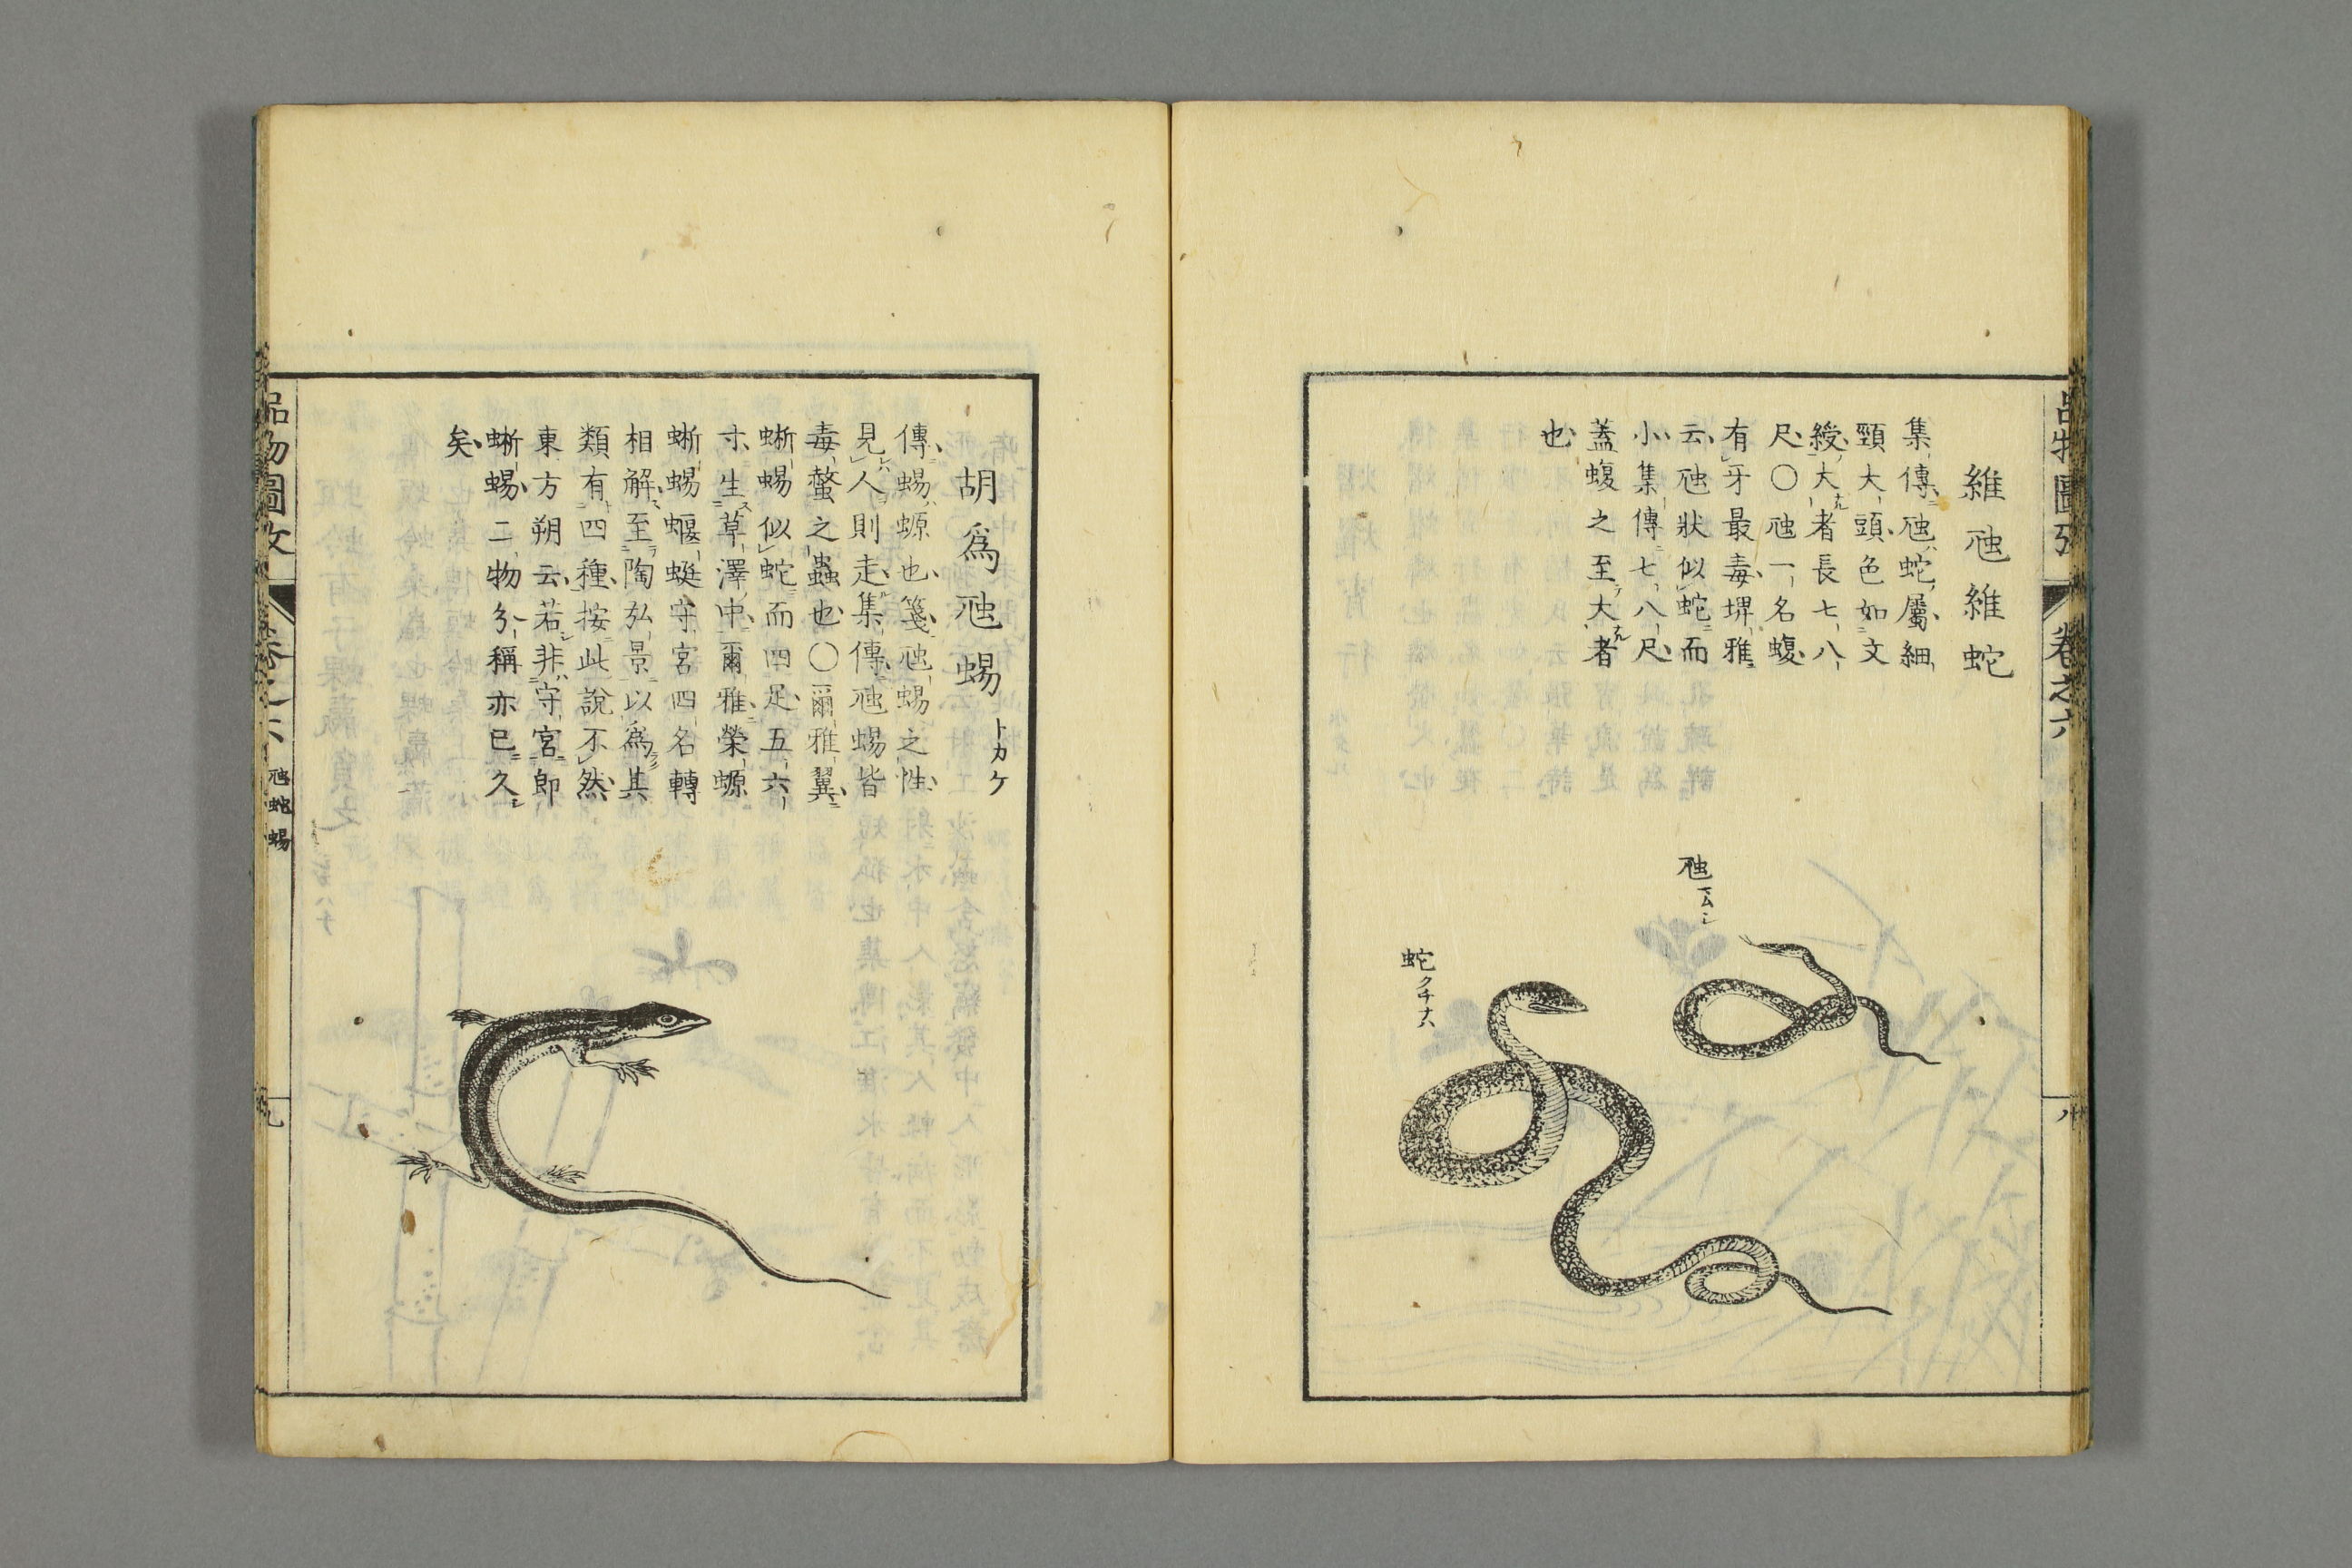 維虺維蛇
集傳虺蛇屬細
頸大頭色如文
綬大者長七八
尺〇虺一名蝮
有牙最毒埤雅
云虺狀似蛇而
小集傳七八尺
蓋蝮之至大者
也
虺
蛇クチナハ
卷之六
八
胡爲虺蜴トカケ
傳蜴螈也箋虺蜴之性
見人則走集傳虺蜴皆
毒螫之蟲也〇爾雅翼
蜥蜴似蛇而四足五六
寸生草澤中爾雅榮螈
蜥蜴蝘蜓守宮四名轉
相解至陶弘景以爲其
類有四種按此說不然
東方朔云若非守宮即
蜥蜴二物分稱亦已久
矣
品物圖攷
虺蛇蜴
九